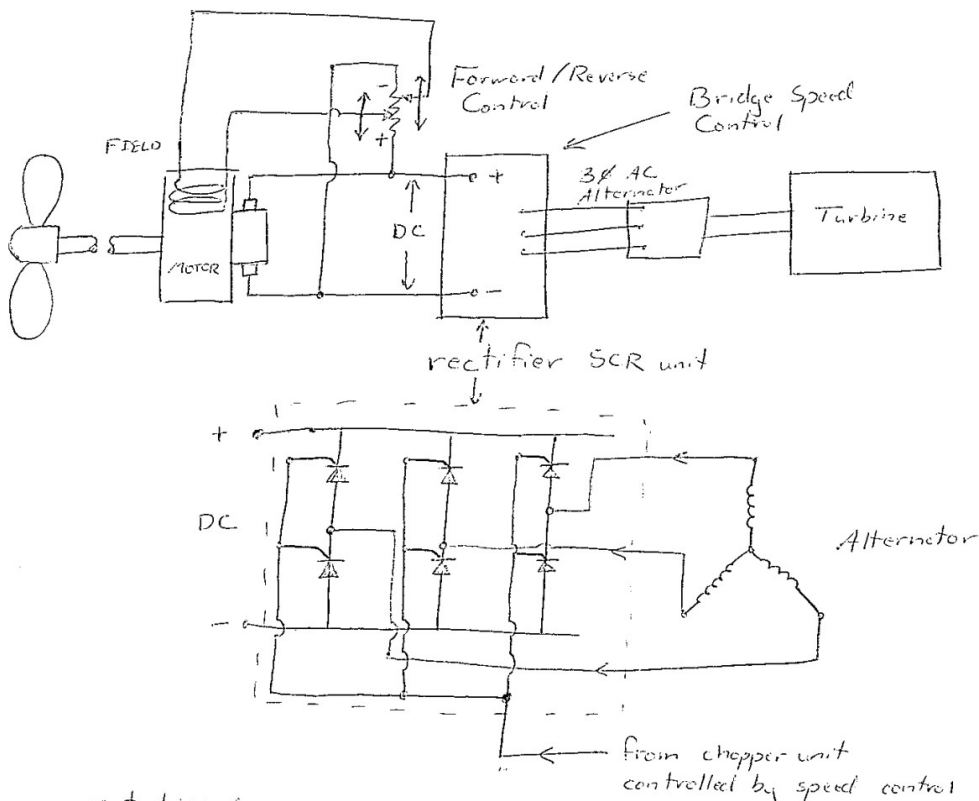 Forward/Reverse
Control
Bridge Speed
Control
FIELD
-
+
3ϕ AC
Alternator
Turbine
+
DC
MOTOR
-
rectifier SCR unit
+
DC
Alternator
-
from chopper unit
controlled by speed control